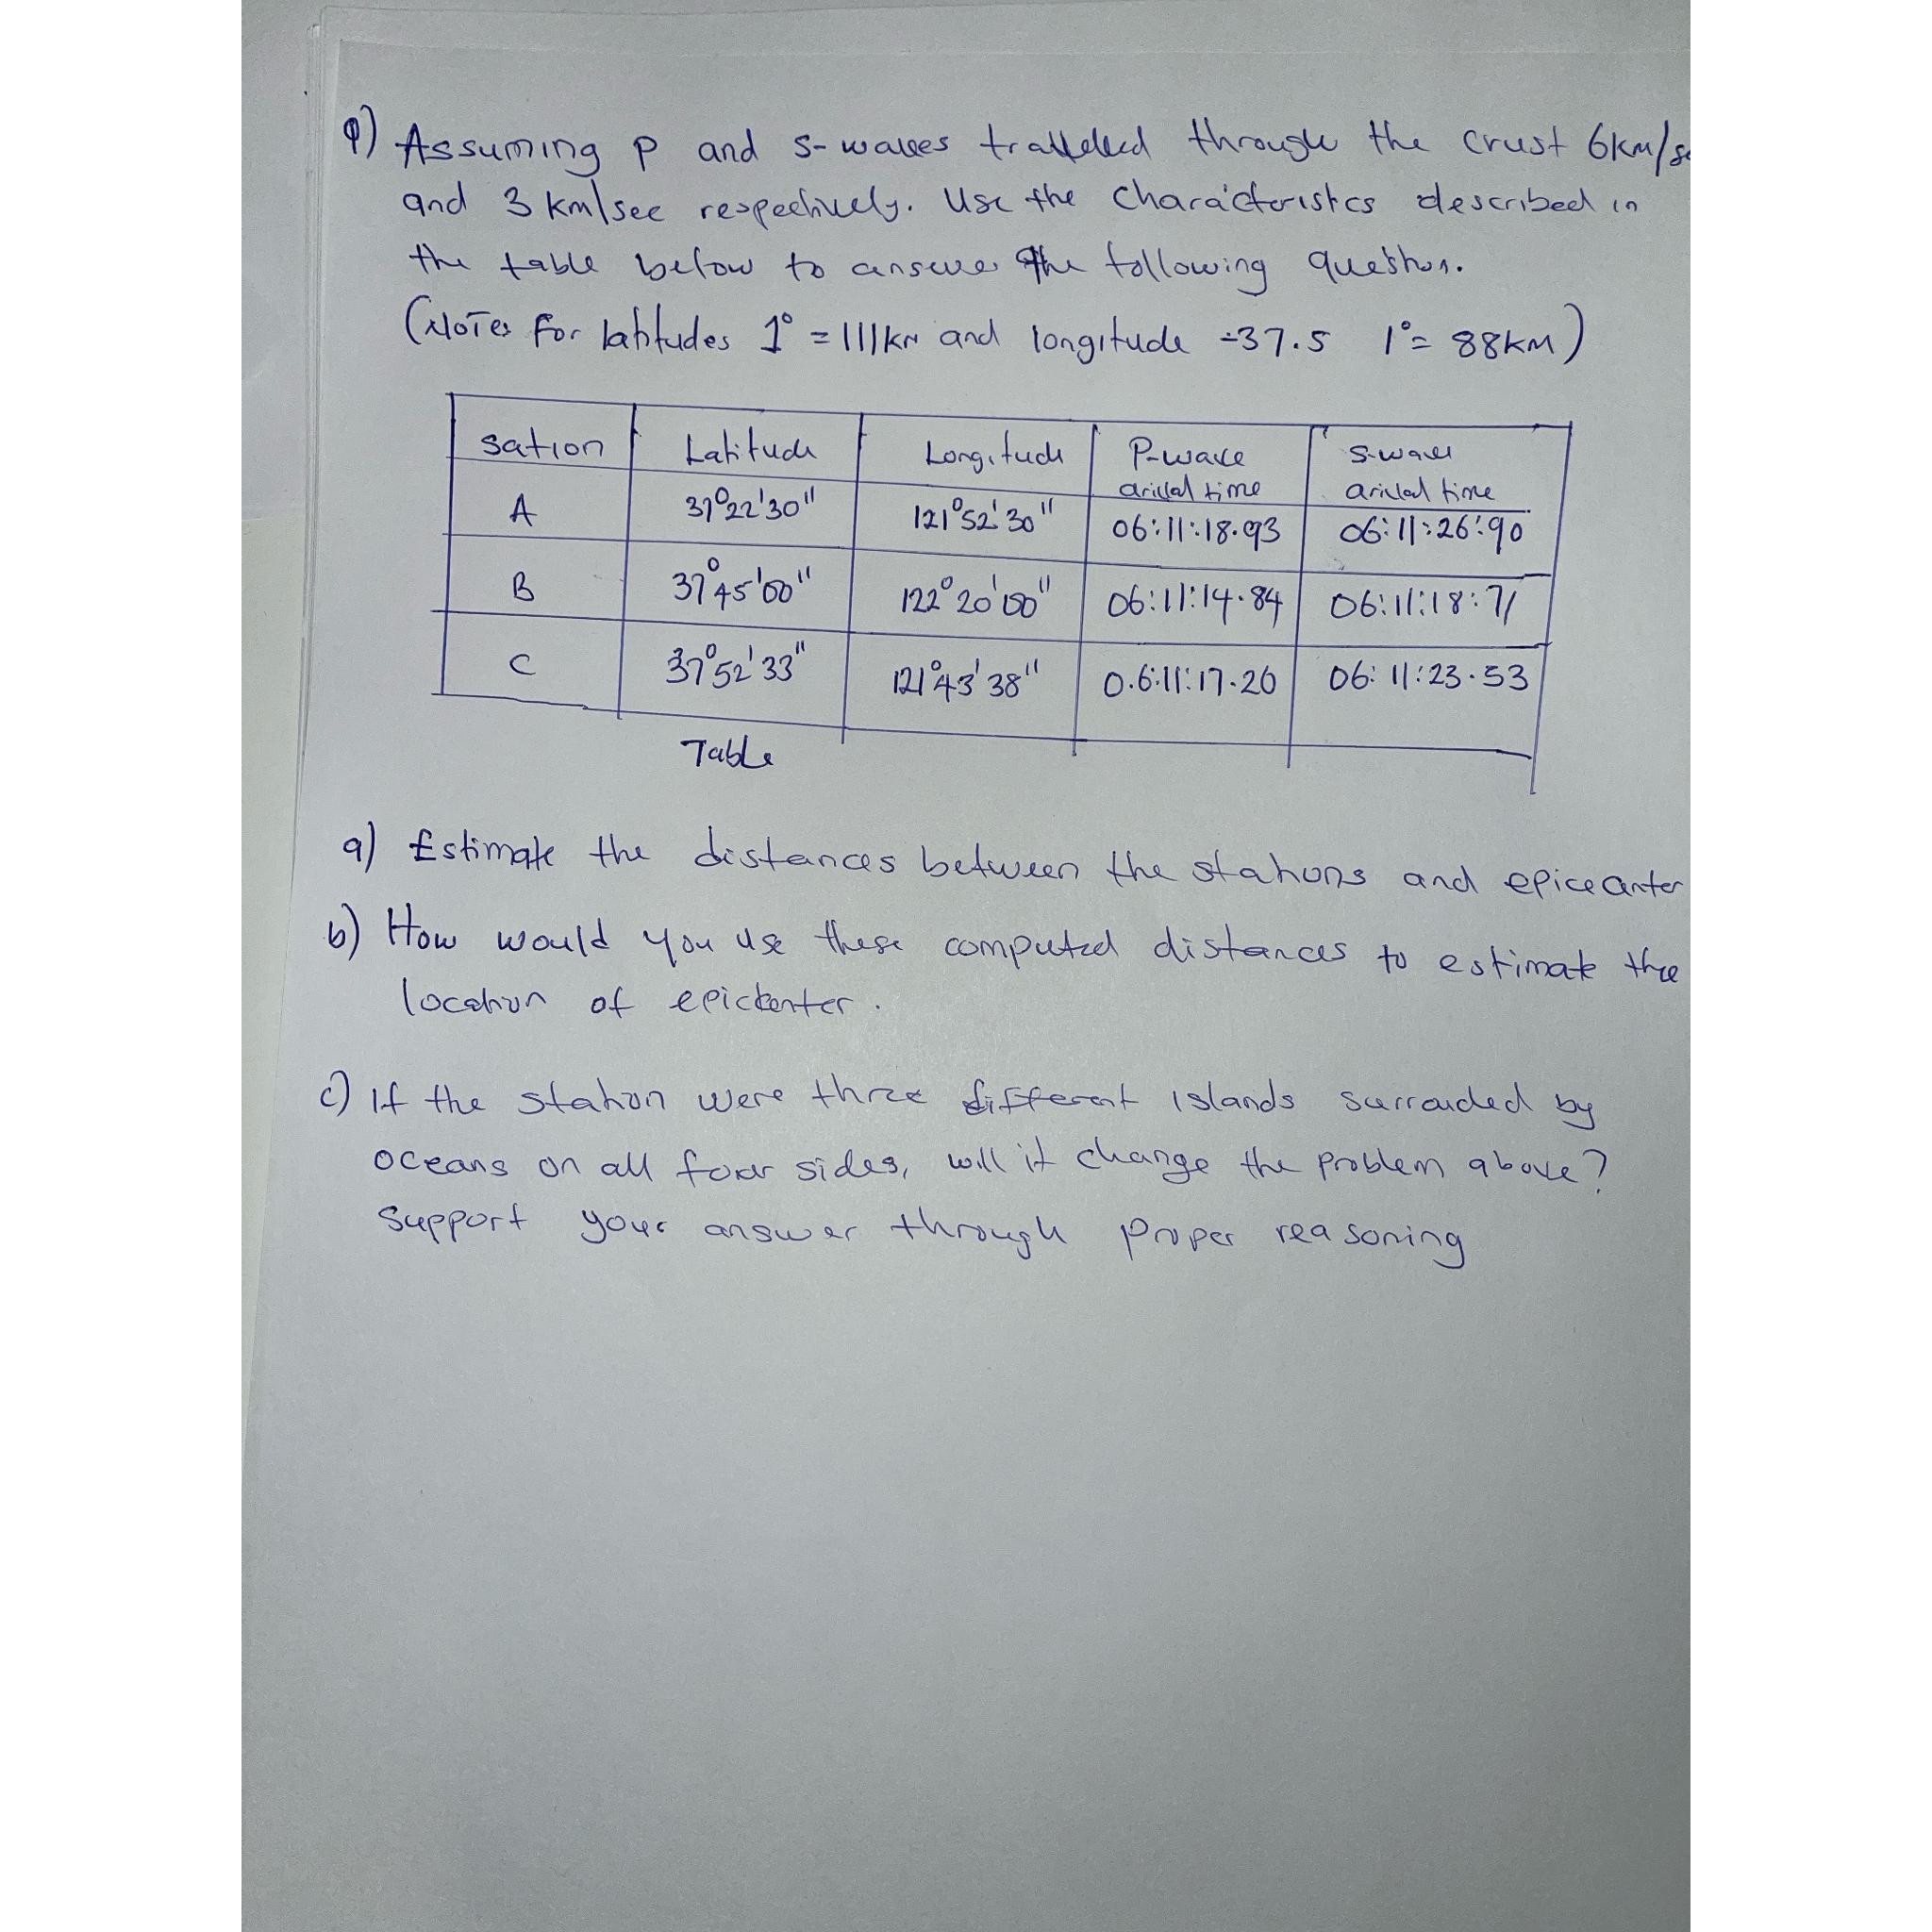 Q) Assuming P and S-waves travelled through the crust 6km/se
and 3 km/sec respectively. Use the characteristcs described in
the table below to answer the following question.
(NOTE: For latitudes 1° = 111KM and longitude =37.5 1°= 88KM)
Sation Latitude Longitude P-wave arival time S-wave arival time
A 37°22'30" 121°52'30" 06:11:18.93 06:11:26:90
B 37°45'00" 122°20'00" 06:11:14.84 06:11:18:71
C 37°52'33" 121°43'38" 0.6:11:17.20 06:11:23.53
Table
a) Estimate the distances between the stations and epiceanter
b) How would you use these computed distances to estimate the
location of epickenter.
c) If the station were three different Islands surrouded by
oceans on all four sides, will it change the problem above?
Support your answer through proper reasoning